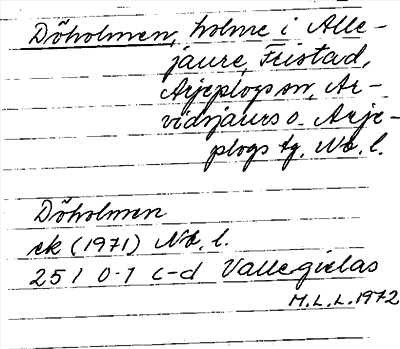 Döholmen, holme i Alle-
jaure, Feistad,
Arjeplogs sn, Ar-
vidsjaurs o. Arje-
plogs tg. Nb. l.
Döholmen
ek (1971) Nb. l.
25 I 0-1 c-d Vallegielas
M.L.L. 1972